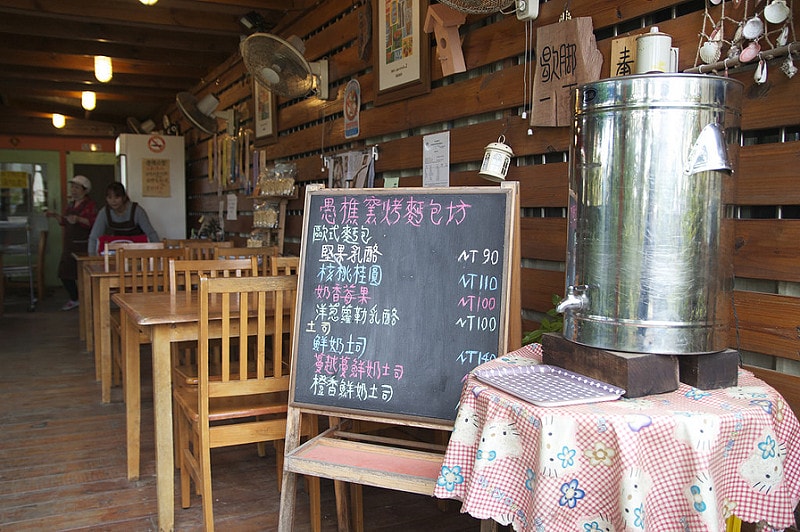 愚樵窯烤麵包坊
歐式麵包
堅果乳酪 NT 90
核桃桂圓 NT 110
奶香莓果 NT 100
洋蔥蘿勒乳酪 NT 100
土司
鮮奶土司 NT 140
蔓越蔓鮮奶土司
橙香鮮奶土司
歇脚